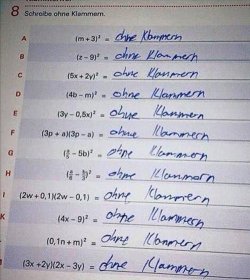 8 Schreibe ohne Klammern.
A (m + 3)² = ohne Klammern
B (z – 9)² = ohne Klammern
C (5x + 2y)² = ohne Klammern
D (4b – m)² = ohne Klammern
E (3y – 0,5x)² = ohne Klammern
F (3p + a)(3p – a) = ohne Klammern
G – 5b)² = ohne Klammern
H = ohne Klammern
I (2w + 0,1)(2w – 0,1) = ohne Klammern
K (4x – 9)² = ohne Klammern
(0,1n + m)² = ohne Klammern
(3x + 2y)(2x – 3y) = ohne Klammern